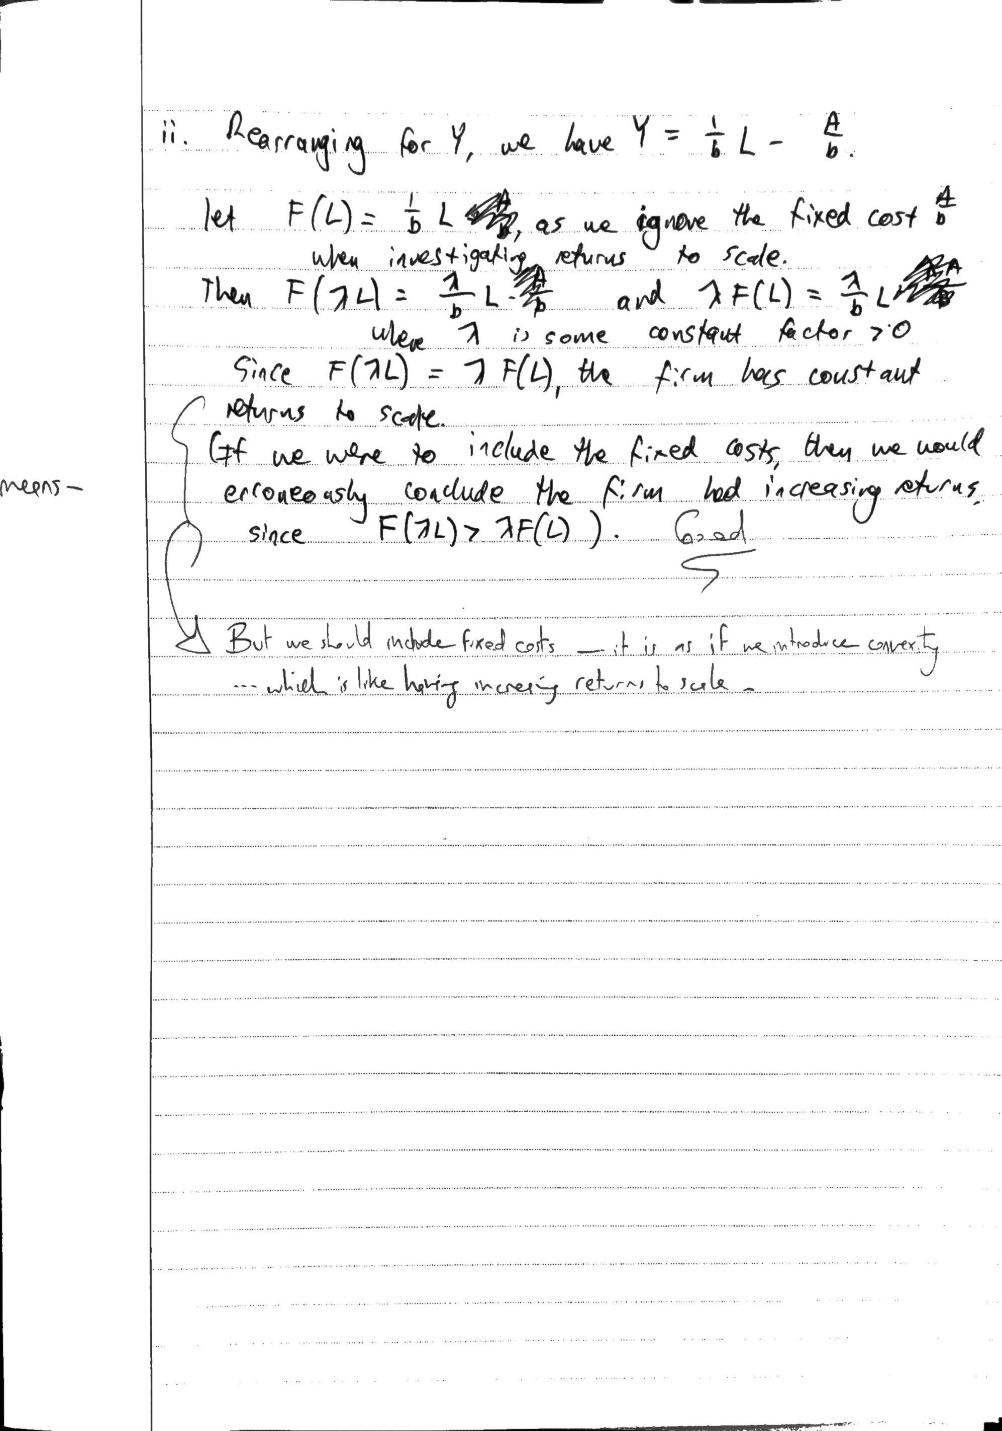 ii. Rearranging for Y, we have Y = 1/b L - A/b.
let F(L) = 1/b L, as we ignore the fixed cost A/b
when investigating returns to scale.
Then F(λL) = λ/b L and λF(L) = λ/b L
where λ is some constant factor >0
Since F(λL) = λF(L), the firm has constant
returns to scale.
(If we were to include the fixed costs, then we would
means -
erroneously conclude the firm had increasing returns,
since F(λL) > λF(L) ). Good
But we should include fixed costs — it is as if we introduce convexity
... which is like having increasing returns to scale.